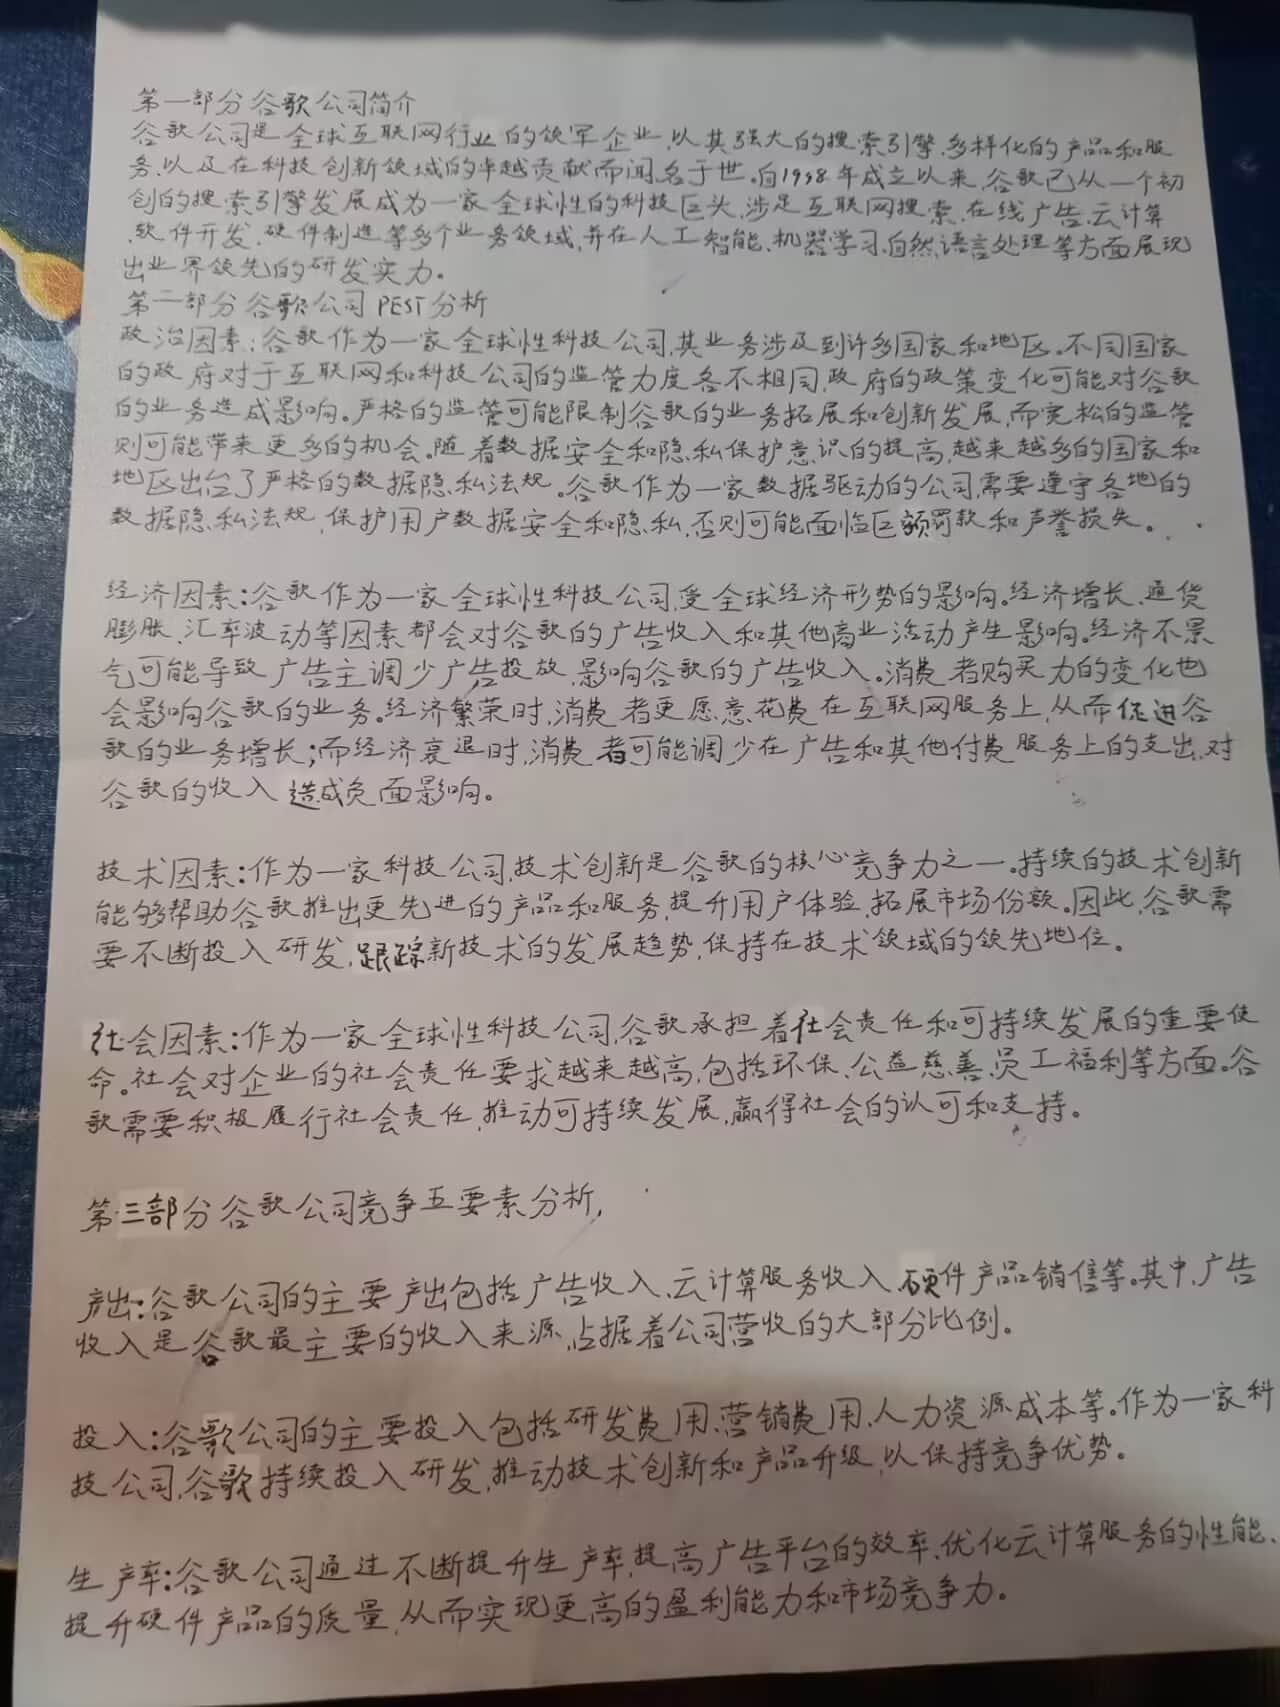 第一部分谷歌公司简介
谷歌公司是全球互联网行业的领军企业,以其强大的搜索引擎、多样化的产品和服
务,以及在科技创新领域的卓越贡献而闻名于世。自1998年成立以来,谷歌已从一个初
创的搜索引擎发展成为一家全球性的科技巨头,涉足互联网搜索、在线广告、云计算
、软件开发、硬件制造等多个业务领域,并在人工智能、机器学习、自然语言处理等方面展现
出业界领先的研发实力。
第二部分谷歌公司PEST分析
政治因素:谷歌作为一家全球性科技公司,其业务涉及到许多国家和地区。不同国家
的政府对于互联网和科技公司的监管力度各不相同,政府的政策变化可能对谷歌
的业务造成影响。严格的监管可能限制谷歌的业务拓展和创新发展,而宽松的监管
则可能带来更多的机会。随着数据安全和隐私保护意识的提高,越来越多的国家和
地区出台了严格的数据隐私法规。谷歌作为一家数据驱动的公司,需要遵守各地的
数据隐私法规,保护用户数据安全和隐私,否则可能面临巨额罚款和声誉损失。
经济因素:谷歌作为一家全球性科技公司,受全球经济形势的影响。经济增长、通货
膨胀、汇率波动等因素都会对谷歌的广告收入和其他商业活动产生影响。经济不景
气可能导致广告主调少广告投放,影响谷歌的广告收入。消费者购买力的变化也
会影响谷歌的业务。经济繁荣时,消费者更愿意花费在互联网服务上,从而促进谷
歌的业务增长;而经济衰退时,消费者可能调少在广告和其他付费服务上的支出,对
谷歌的收入造成负面影响。
技术因素:作为一家科技公司,技术创新是谷歌的核心竞争力之一。持续的技术创新
能够帮助谷歌推出更先进的产品和服务,提升用户体验,拓展市场份歌。因此,谷歌需
要不断投入研发,跟踪新技术的发展趋势,保持在技术领域的领先地位。
社会因素:作为一家全球性科技公司,谷歌承担着社会责任和可持续发展的重要使
命。社会对企业的社会责任要求越来越高,包括环保、公益慈善、员工福利等方面。谷
歌需要积极履行社会责任,推动可持续发展,赢得社会的认可和支持。
第三部分谷歌公司竞争五要素分析,
产出:谷歌公司的主要产出包括广告收入、云计算服务收入、硬件产品销信等。其中,广告
收入是谷歌最主要的收入来源,占据着公司营收的大部分比例。
投入:谷歌公司的主要投入包括研发费用、营销费用、人力资源成本等。作为一家科
技公司,谷歌持续投入研发,推动技术创新和产品升级,以保持竞争优势。
生产率:谷歌公司通过不断提升生产率,提高广告平台的效率、优化云计算服务的性能、
提升硬件产品的质量,从而实现更高的盈利能力和市场竞争力。